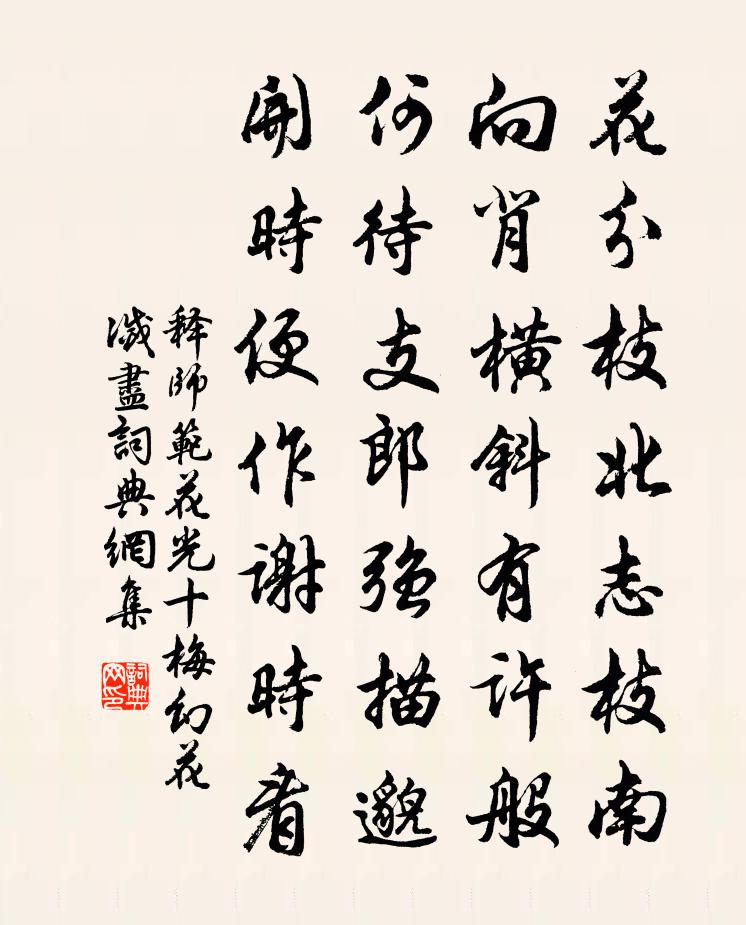 花分枝北志枝南
向背橫斜有許般
何待支郎强描邈
開時便作謝時看
释師範花光十梅幻花
滅盡詞典網集
詞典网印